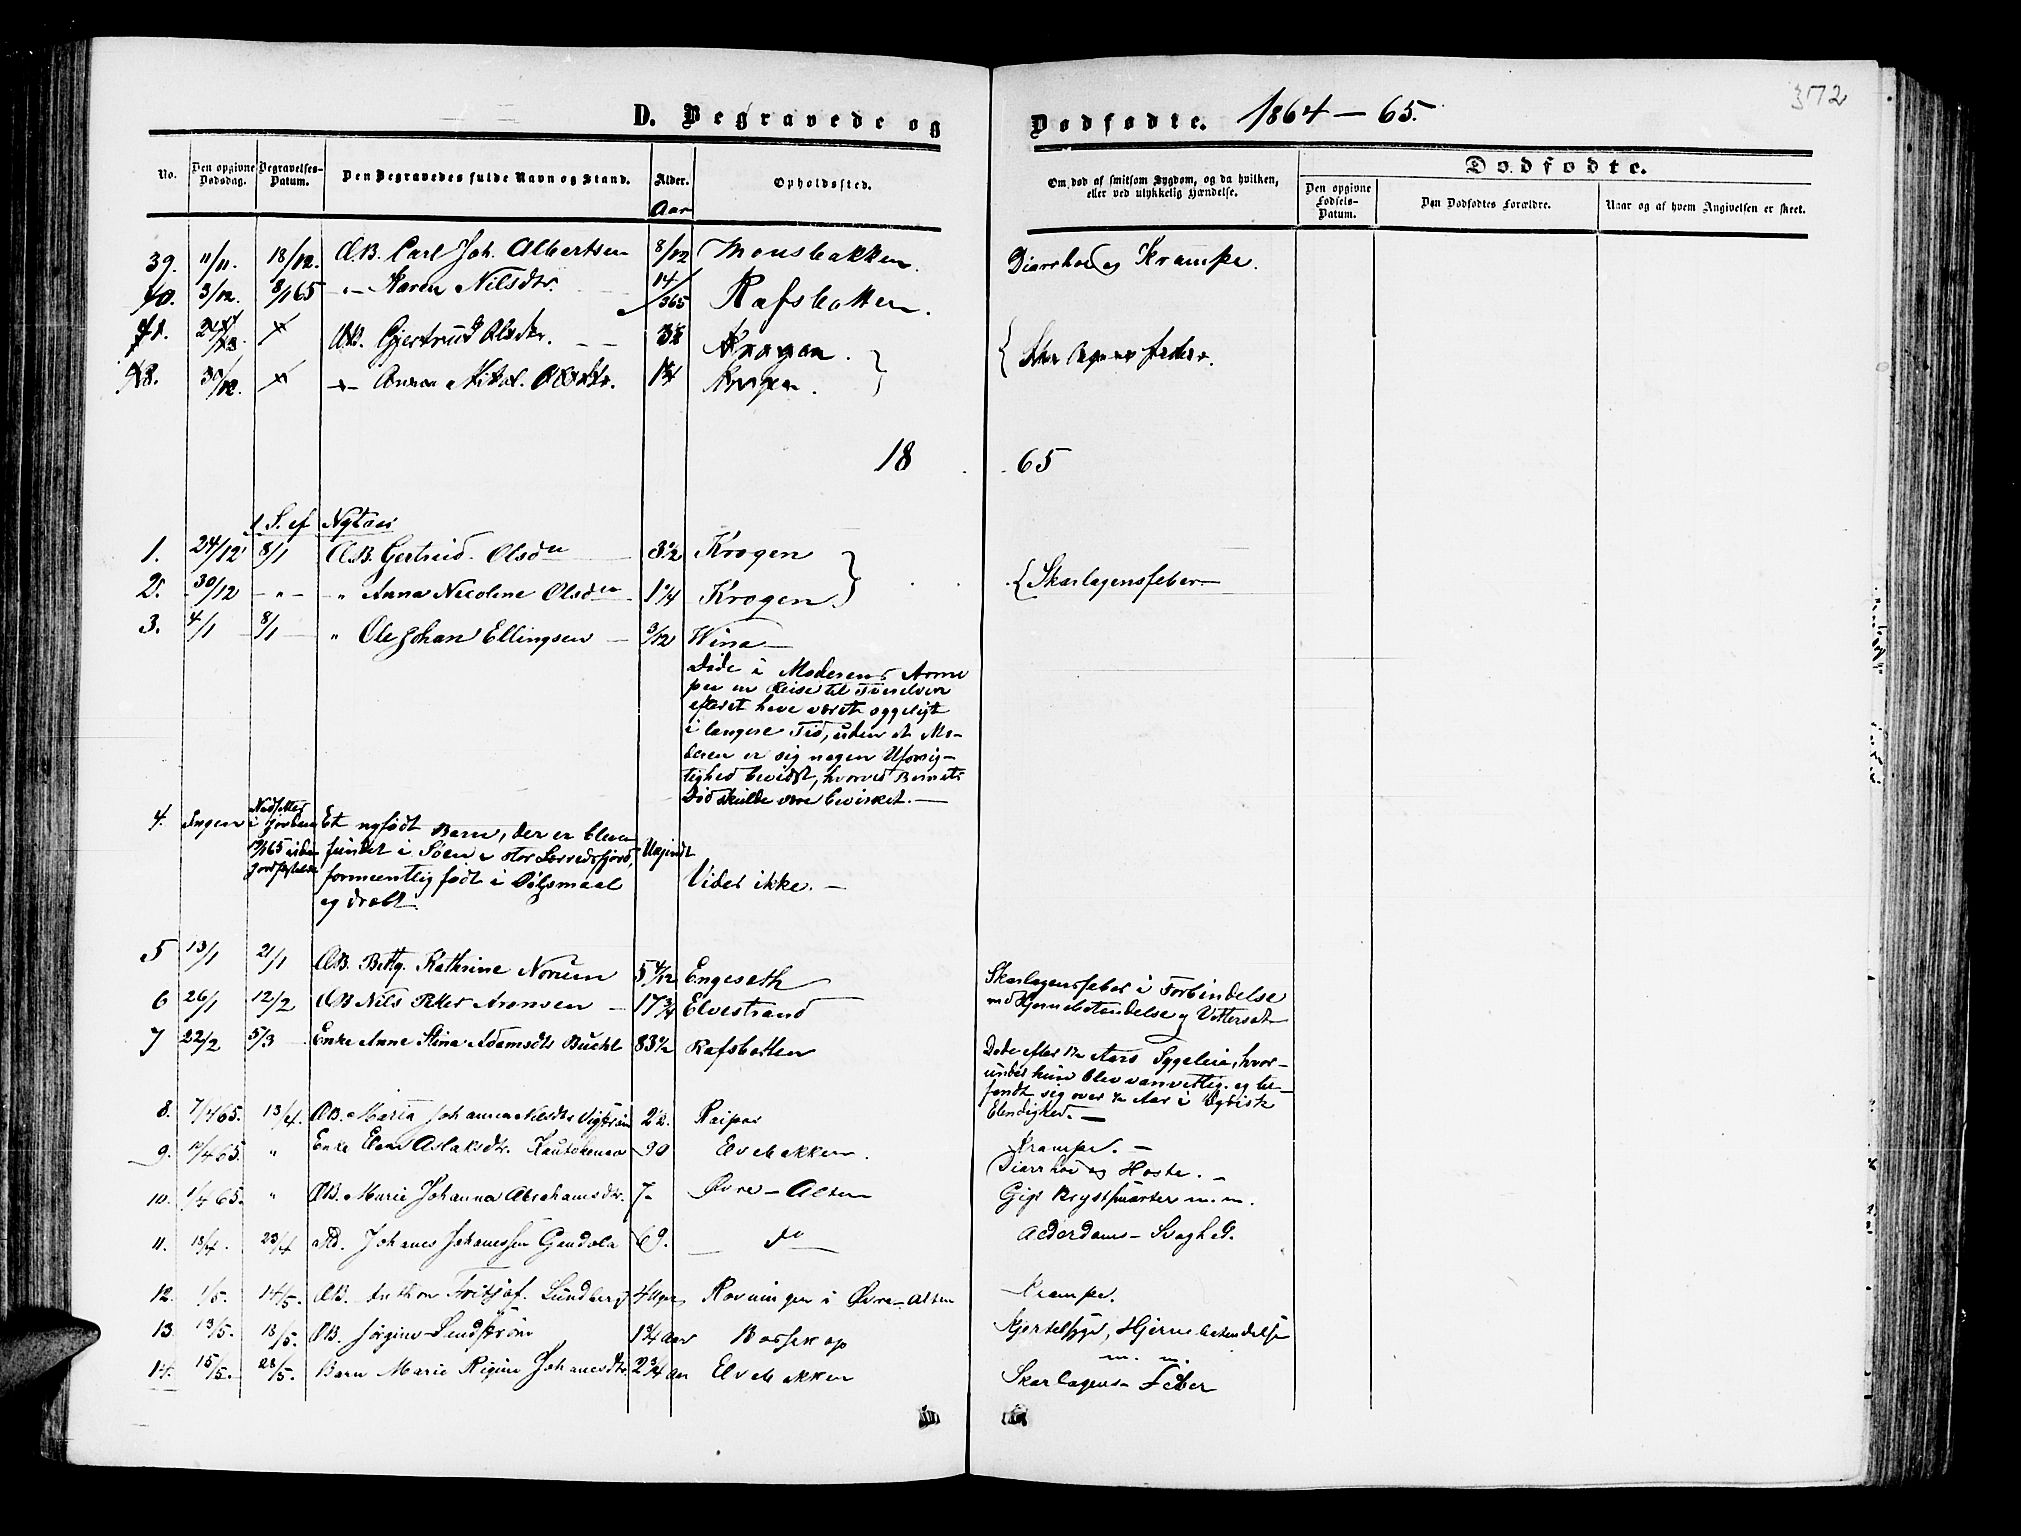 372
D. Begravede og Dødfødte. 1864 – 65.
No. Den opgivne Dødsdag. Begravelses-Datum. Den Begravedes fulde Navn og Stand. Alder. Opholdssted. Om død af smitsom Sygdom, og da hvilken, eller ved ulykkelig Hændelse. Dødfødte.
Aar
Den opgivne Fødsels-Datum. Den Dødfødtes Forældre. Naar og af hvem Angivelsen er skeet.
39. 11/11. 18/12. ÆB. Carl Joh. Albertsen 8/12 Monsbakken. Diarrhoe og Krampe.
40. 3/12. 8/1 65 " Karen Nilsdtr. 14/365 Rafsbotten.
41. ÆB. Gjertrud Olsdtr. 3½ Krogen.
30/12. Anna Nikol. Olsdtr. 1¼ Krogen.
18 65
1 S. ef Nytaar
1. 24/12 8/1 ÆB. Gertrud Olsdtr 3½ Krogen
2. 30/12 – " – " Anna Nicoline Olsdtr 1¼ Krogen } { Skarlagensfeber –
3. 4/1 8/1 " Ole Johan Ellingsen – 3/12 Wina –
Døde i Moderens Arme
paa en Reise til Tverelven
efter at have været sygeligt
i længere Tid, uden at Mo-
deren er sig nogen Uforsig-
tighed bevidst, hvorved Barnets
Død skulde være bevirket. –
4. Ingen Nedsettes i Jorden Et nyfødt Barn, der er bleven
fundet i Søen i stor Lerredsfjord, Uvist
formentlig født i Dølgsmaal Vides ikke. –
og dræbt.
5 13/1 21/1 ÆB. Betty Kathrine Norum 5 4/12 Engeseth
6 26/1 12/2 ÆB Nils Peter Aronsen – 17¾ Elvestrand
Skarlagensfeber i Forbindelse
med Hjernebetændelse og Vattersot
7 22/2 5/3 Enke Anne Stina Adamsdtr Bucht 83½ Rafsbotten
Døde efter Aars Sygeleie, hvor-
under hun blev vanvittig og be-
fandt sig over ½ Aar i dybeste
Elendighed. –
8. 7/4 65. 13/4. ÆB. Maria Johanna Nilsdtr 2½. Raipas Krampe. –
9. 65. " Enke Elen Aslaksdtr. Kautokeino 90 Elvebakken. Diarrhoe og Hoste. –
10. 1/4 65. " ÆB. Marie Johanna Abrahamsdtr. 7– Øvre – Alten Gigt Brystsmerter m. m.
11. 18/4. 23/4 Johanes Johanessen 69. – do – Alderdoms – Svaghed.
12. 1/5. 14/5. ÆB. Anthon Fritjof Lundberg 4 Uger Rovningen i Øvre – Alten Krampe.
13. 13/5. 18/5. ÆB. Jørgine Lindstrøm 1¾ Aar Bossekop Kjertelsyge, Hjernebetændelse
m. m.
14. 15/5. 28/5. Barn Marie Regine Johanesdtr. 2¾ Aar Elvebakken Skarlagens – Feber